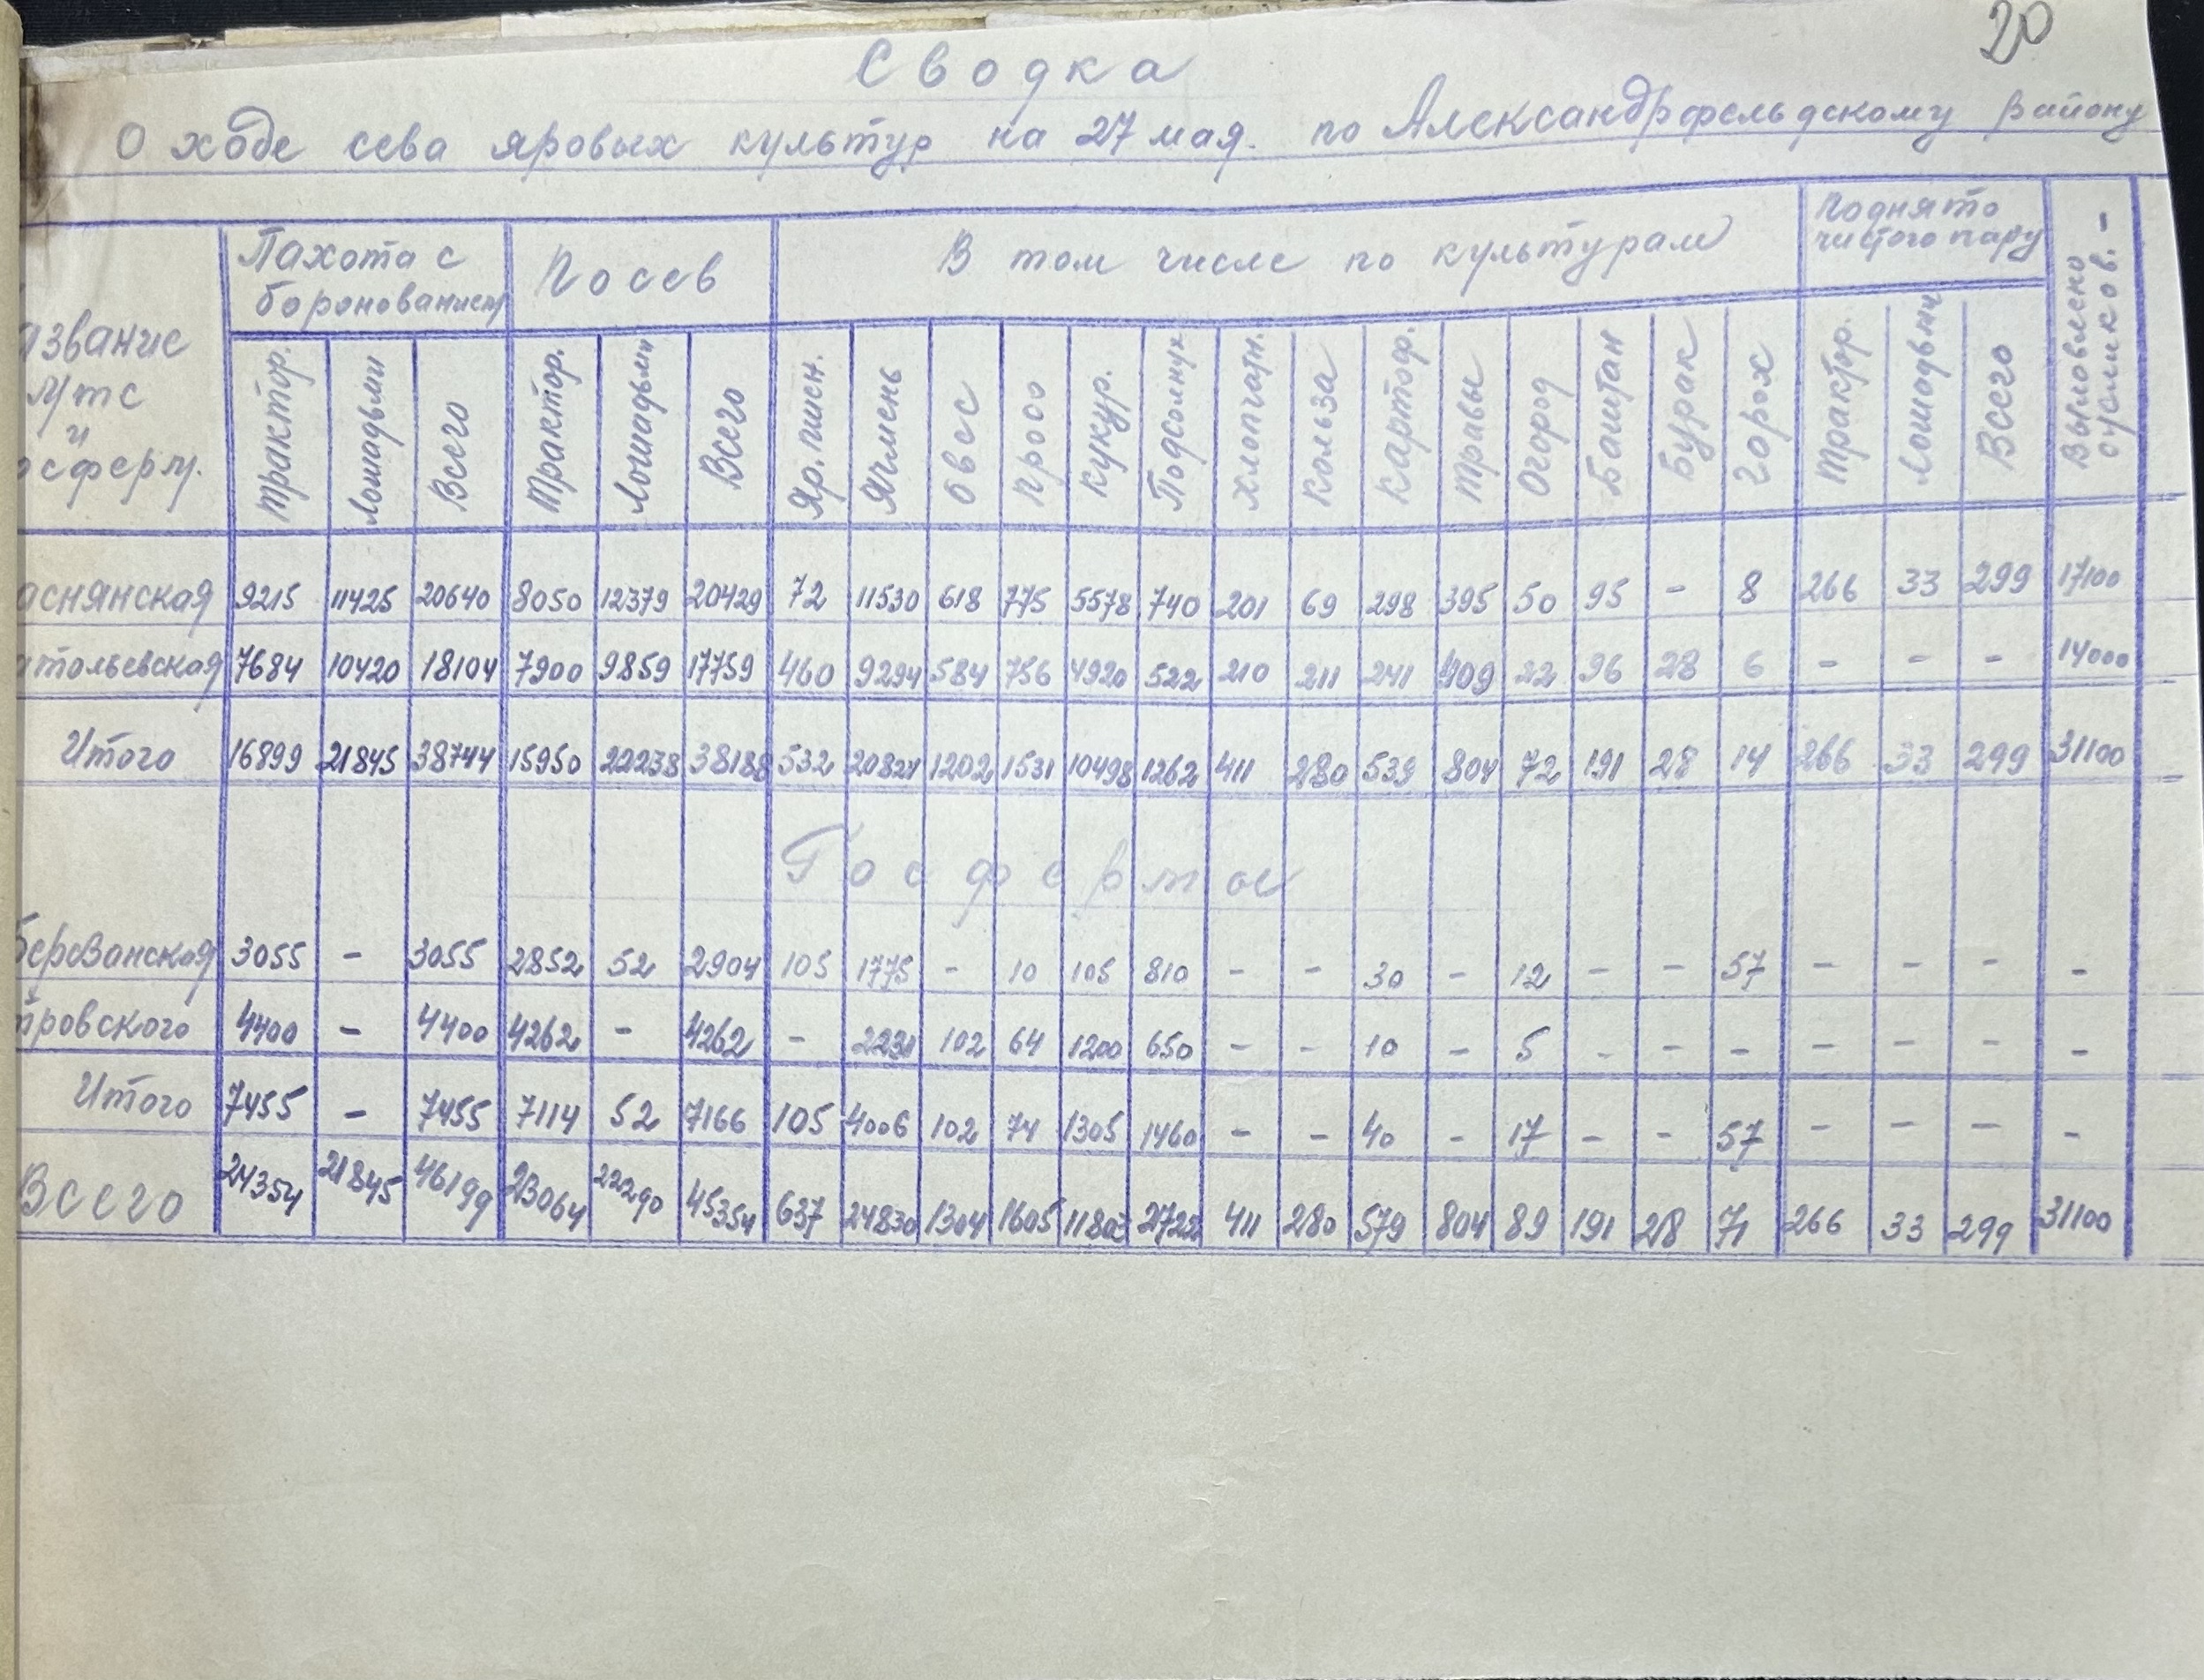 20
Сводка
О ходе сева яровых культур на 27 мая. по Александрфельдскому району
азвание мтс и осферм. Пахота с боронованием Посев В том числе по культурам Поднято чистого пару Выловлено сусликов. -
Трактор. Лошадьми Всего Трактор. Лошадьми Всего Яр. пшен. Ячмень Овес Просо Кукур. Подсолнух Хлопчатн. Кольза Картоф. Травы Огород Баштан Бурак Горох Трактор. Лошадьми Всего
аснянская 9215 11425 20640 8050 12379 20429 72 11530 618 775 5578 740 201 69 298 395 50 95 - 8 266 33 299 17100
атольевская 7684 10420 18104 7900 9859 17759 460 9294 584 756 4920 522 210 211 241 409 22 96 28 6 - - - 14000
Итого 16899 21845 38744 15950 22238 38188 532 20824 1202 1531 10498 1262 411 280 539 804 72 191 28 14 266 33 299 31100
Госфермы
березанская 3055 - 3055 2852 52 2904 105 1775 - 10 105 810 - - 30 - 12 - - 57 - - - -
тровского 4400 - 4400 4262 - 4262 - 2231 102 64 1200 650 - - 10 - 5 - - - - - - -
Итого 7455 - 7455 7114 52 7166 105 4006 102 74 1305 1460 - - 40 - 17 - - 57 - - - -
Всего 24354 21845 46199 23064 22290 45354 637 24830 1304 1605 11803 2722 411 280 579 804 89 191 28 71 266 33 299 31100